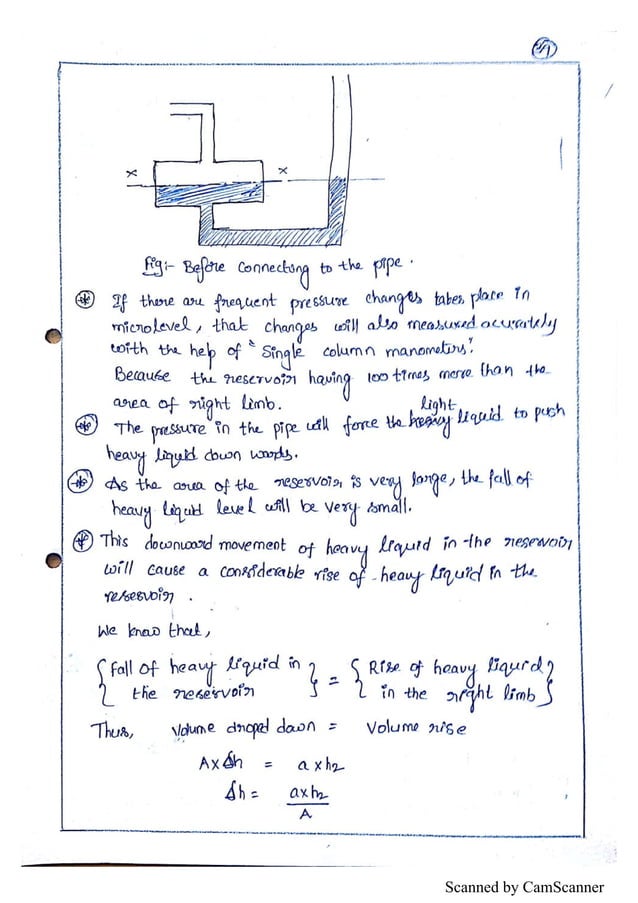 x x
Fig:- Before connecting to the pipe.
If there are frequent pressure changes takes place in
microlevel, that changes will also measured accurately
with the help of "Single column manometers".
Because the reservoir having 100 times more than the
area of right limb.
The pressure in the pipe will force the light liquid to push
heavy liquid down words.
As the area of the reservoir is very large, the fall of
heavy liquid level will be very small.
This downward movement of heavy liquid in the reservoir
will cause a considerable rise of heavy liquid in the
reservoir.
We know that,
{Fall of heavy liquid in } = {Rise of heavy liquid}
{the reservoir } {in the right limb}
Thus, Volume droped down = Volume rise
A x Δh = a x h2
Δh = a x h2
A
Scanned by CamScanner